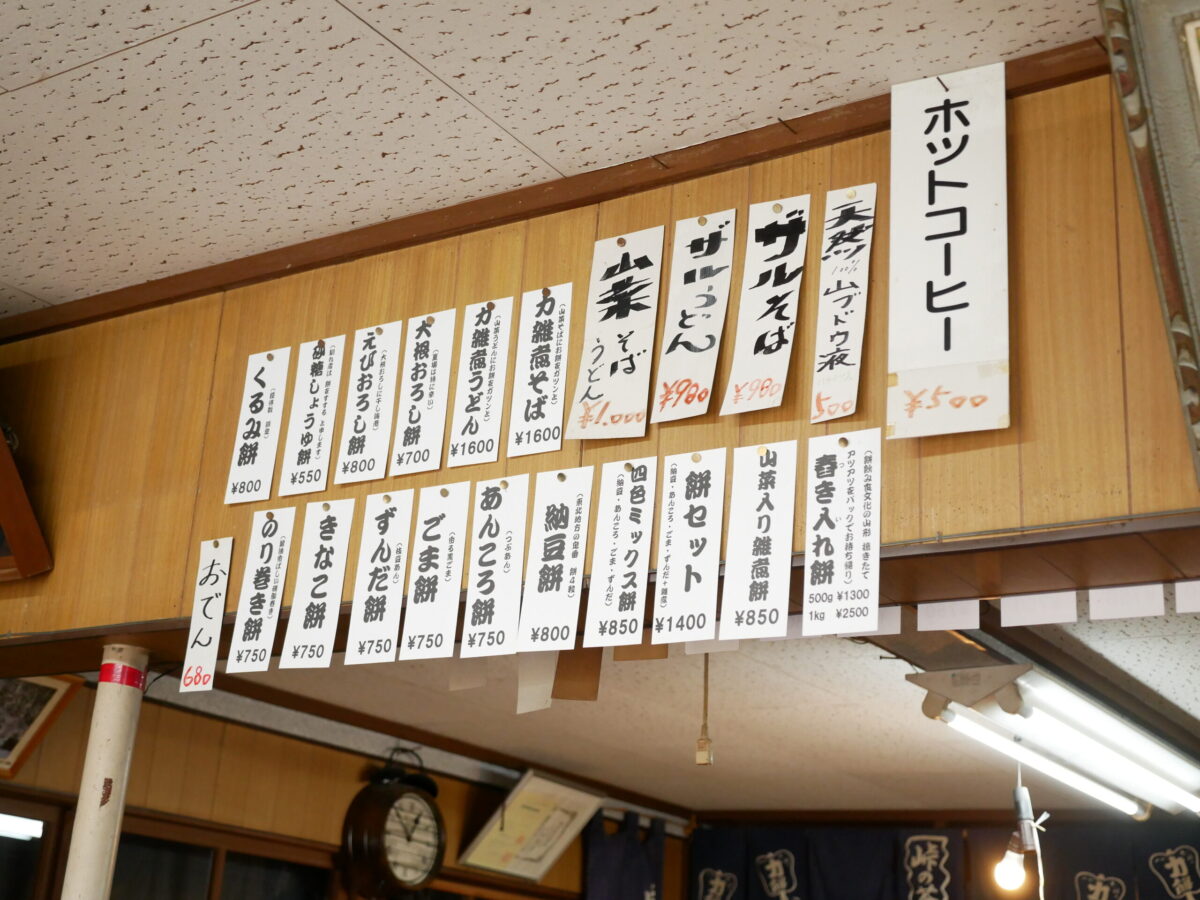 ホットコーヒー
¥500
天然
100%
山ブドウ液
500
ザルそば
¥980
ザルうどん
¥980
山菜
そば
うどん
¥1,000
力雑煮そば
(山菜そばにお餅をガツンと)
¥1600
力雑煮うどん
(山菜うどんにお餅をガツンと)
¥1600
大根おろし餅
(夏場は特に辛い)
¥700
えびおろし餅
¥800
砂糖しょうゆ餅
¥550
くるみ餅
¥800
舂き入れ餅
(餅飴み食文化の山形 搗きたて
アツアツをパックでお持ち帰り)
500g ¥1300
1kg ¥2500
山菜入り雑煮餅
¥850
餅セット
(納豆・あんころ・ごま・ずんだ+雑煮)
¥1400
四色ミックス餅
(納豆・あんころ・ごま・ずんだ)
¥850
納豆餅
¥800
あんころ餅
(つぶあん)
¥750
ごま餅
¥750
ずんだ餅
(枝豆あん)
¥750
きなこ餅
¥750
のり巻き餅
¥750
おでん
680
力
峠の茶
力
力